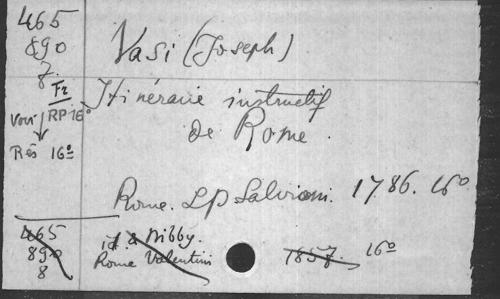 465
890
7.
Vasi (Joseph)
Fr
Itinéraire instructif
de Rome.
Voir RP 16°
Rés 16°
Rome. LP Salvioni. 1786. 16°
465
890
8
id & Nibby.
Rome Valentini
1857. 16°